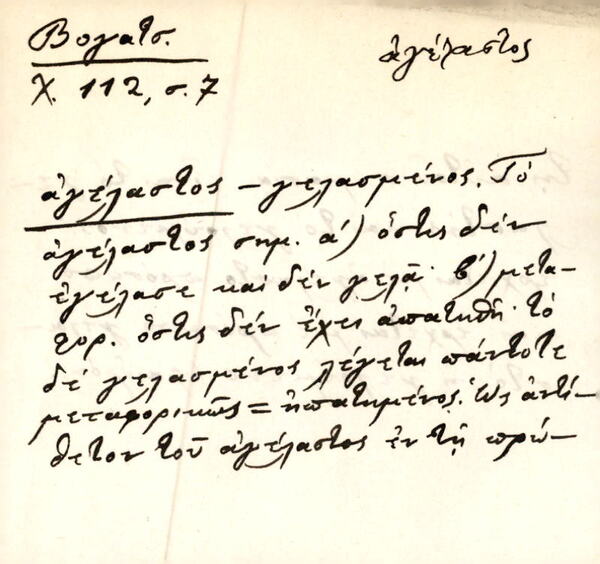 Βογατσ.
ἀγέλαστος
Χ. 112, σ. 7
ἀγέλαστος – γελασμένος. Τὸ
ἀγέλαστος σημ. α΄) ὅστις δὲν
ἐγέλασε καὶ δὲν γελᾷ· β΄) μετα-
φορ. ὅστις δὲν ἔχει ἀπατηθῆ· τὸ
δὲ γελασμένος λέγεται πάντοτε
μεταφορικῶς = ἠπατημένος. Ὡς ἀντί-
θετον τοῦ ἀγέλαστος ἐν τῇ πρώ-